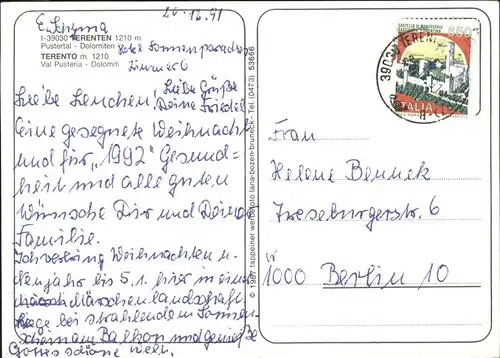 20.12.91
I-39030 TERENTEN 1210 m
Pustertal - Dolomiten
TERENTO m. 1210
Val Pusteria - Dolomiti
Hotel Sonnenparadies
Zimmer 6
Liebe Grüße
Deine Friedel
Liebe Lenchen!
Eine gesegnete Weihnacht
und für "1992" Gesund=
heit und alle guten
Wünsche Dir und Deiner
Familie.
Ich verbring Weihnachten u.
Neujahr bis 5.1. hier in einer
Märchenlandschaft
liege bei strahlendem Sonnen
schein am Balkon und genieße
Gottes schöne Welt.
© 1987 tappeiner werbefoto lana-bozen-bruneck - Tel. (0473) 53666
650
ITALIA
39030 TEREN
Frau
Helene Bennek
Treseburgerstr. 6
W
1000 Berlin 10